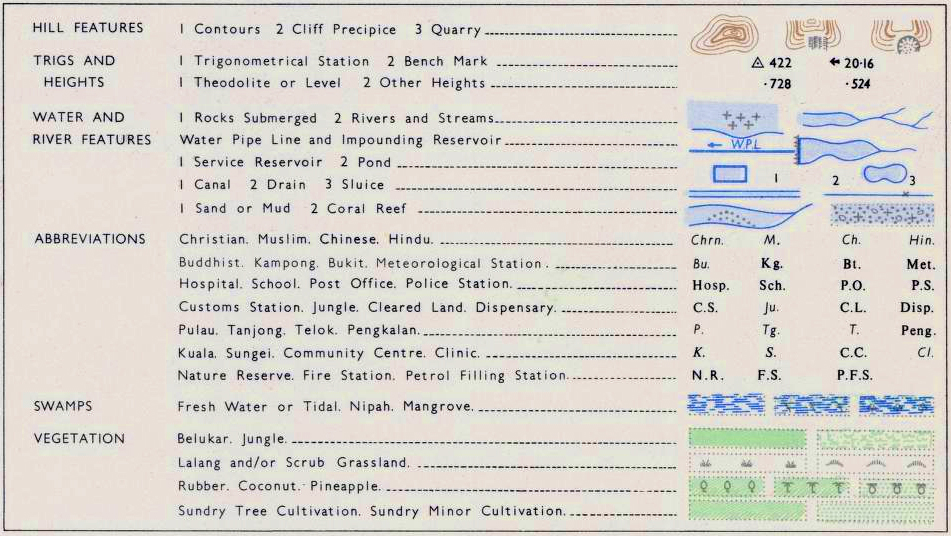 HILL FEATURES 1 Contours 2 Cliff Precipice 3 Quarry
TRIGS AND 1 Trigonometrical Station 2 Bench Mark 422 20·16
HEIGHTS 1 Theodolite or Level 2 Other Heights ·728 ·524
WATER AND 1 Rocks Submerged 2 Rivers and Streams
RIVER FEATURES Water Pipe Line and Impounding Reservoir WPL
1 Service Reservoir 2 Pond
1 Canal 2 Drain 3 Sluice 1 2 3
1 Sand or Mud 2 Coral Reef
ABBREVIATIONS Christian. Muslim. Chinese. Hindu. Chrn. M. Ch. Hin.
Buddhist. Kampong. Bukit. Meteorological Station. Bu. Kg. Bt. Met.
Hospital. School. Post Office. Police Station. Hosp. Sch. P.O. P.S.
Customs Station. Jungle. Cleared Land. Dispensary. C.S. Ju. C.L. Disp.
Pulau. Tanjong. Telok. Pengkalan. P. Tg. T. Peng.
Kuala. Sungei. Community Centre. Clinic. K. S. C.C. Cl.
Nature Reserve. Fire Station. Petrol Filling Station. N.R. F.S. P.F.S.
SWAMPS Fresh Water or Tidal. Nipah. Mangrove.
VEGETATION Belukar. Jungle.
Lalang and/or Scrub Grassland.
Rubber. Coconut. Pineapple.
Sundry Tree Cultivation. Sundry Minor Cultivation.